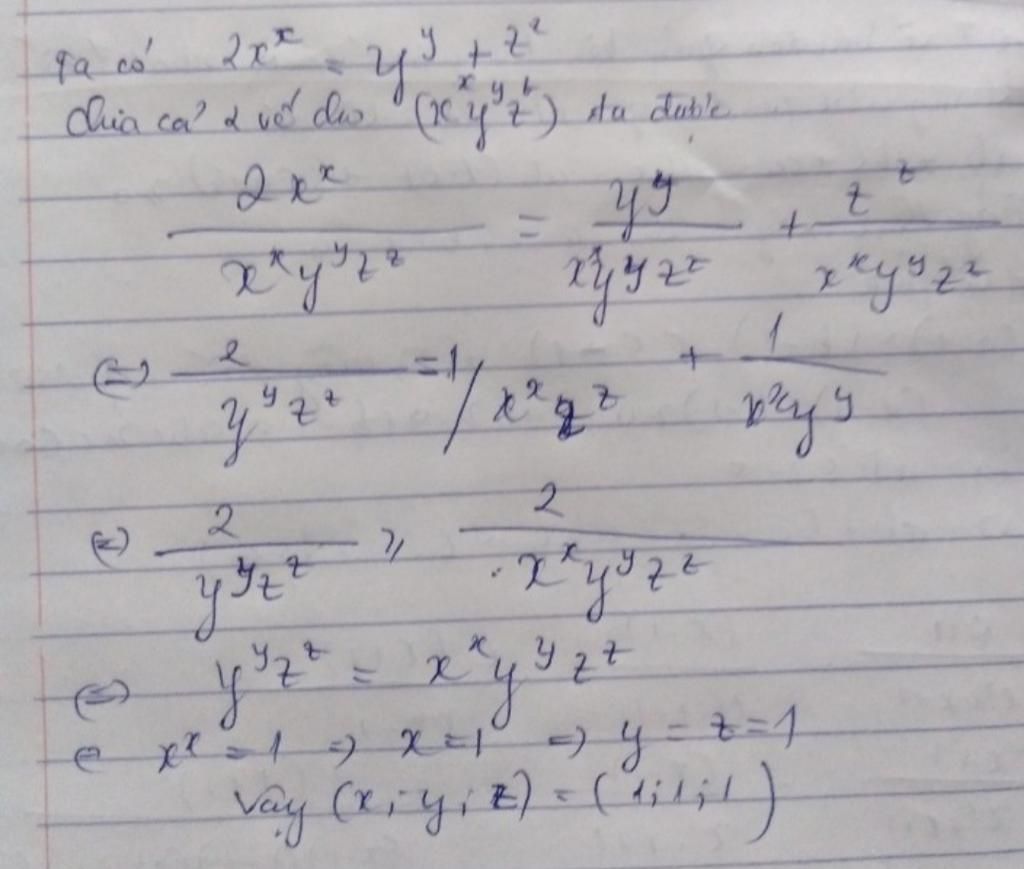 Ta có 2x^x = y^y + z^z
Chia cả 2 vế cho (x^x y^y z^z) ta được
2x^x / x^x y^y z^z = y^y / x^x y^y z^z + z^z / x^x y^y z^z
(=) 2 / y^y z^z = 1 / x^x z^z + 1 / x^x y^y
(=) 2 / y^y z^z ⩾ 2 / x^x y^y z^z
(=) y^y z^z = x^x y^y z^z
(=) x^x = 1 => x = 1 => y = z = 1
Vậy (x; y; z) = (1; 1; 1)